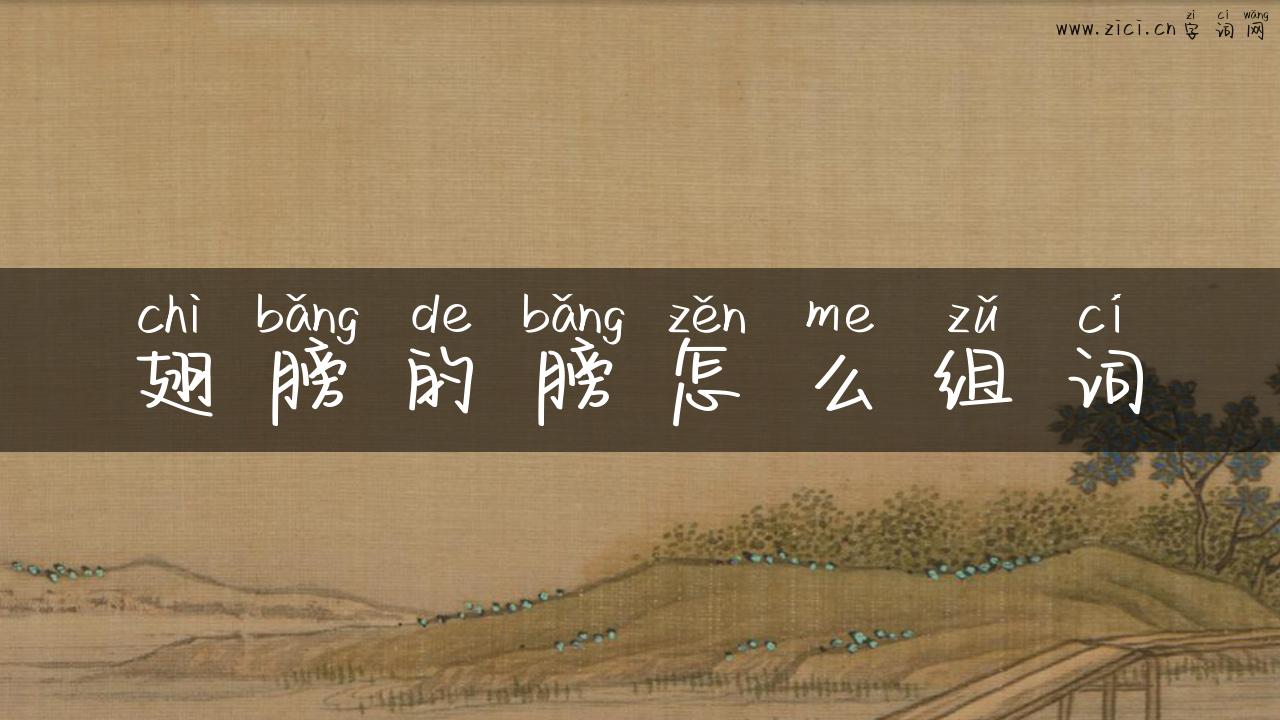 zì cí wǎng
www.zici.cn字词网
chì bǎng de bǎng zěn me zǔ cí
翅膀的膀怎么组词